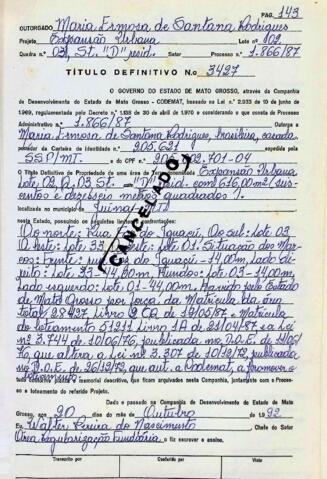 PAG. 143
OUTORGADO Maria Ermosa de Santana Rodrigues
Projeto Expansão Urbana Lote 02
Quadra n.º 03, St. "D" resid. Setor Processo n.º 1.866/87
TÍTULO DEFINITIVO N.o 3427
O GOVERNO DO ESTADO DE MATO GROSSO, através da Companhia
de Desenvolvimento do Estado de Mato Grosso - CODEMAT, baseado na Lei n.º 2.933 de 19 de junho de
1969, regulamentado pelo Decreto n.º 1.138 de 30 de abril de 1970 e considerando o que consta do Processo
Administrativo n.º 1.866/87 Outorga a
Maria Ermosa de Santana Rodrigues, brasileira, casada
portador da Carteira de Identidade n.º 205.621 expedida pela
SSP/MT. e do CPF n.º 701-04
O Título Definitivo de Propriedade de uma área de Terras denominada Expansão Urbana
Lote 02, Q. 03 St. "D" resid. com 616,00m² (seis-
centos e dezesseis metros quadrados).
localizada no município de Juína-MT
neste Estado, possuindo os seguintes limites e confrontações:
Ao norte: Rua Foz do Iguaçú, Ao sul: lote 03
A leste: lote 33 este: lote 01. Situação dos Mar-
cos: Frente: rua Foz do Iguaçú - 14,00m, Lado di-
reito: lote 33 - 44,00m, Fundos: lote 03 - 14,00m,
Lado esquerdo: lote 01 - 44,00m. Havido pelo Estado
de Mato Grosso por força da Matrícula da área
total 28427, Livro 2 CQ de 19/05/87 e Matrícula
do loteamento 51211 Livro 1A de 21/04/87 e a Lei
nº 3.744 de 10/06/76, publicada no D.O.E. de
76, que altera a Lei nº 3.307 de 10/12/72, publicada
no D.O.E. de 26/12/72, que aut. a Codemat, a promover o
loteamento.
tudo conforme planta e memorial descritivo, que ficam arquivados nesta Companhia, juntamente com o Proces-
so e loteamento do referido Projeto.
Dado e passado na Companhia de Desenvolvimento do Estado de Mato
Grosso, aos 20 dias do mês de Outubro de 1992
Eu, Walter Pereira do Nascimento Chefe do Setor
Área Regularização Fundiária o fiz escrever e assino.
Transcrito por Conferido por Visto
CANCELADO